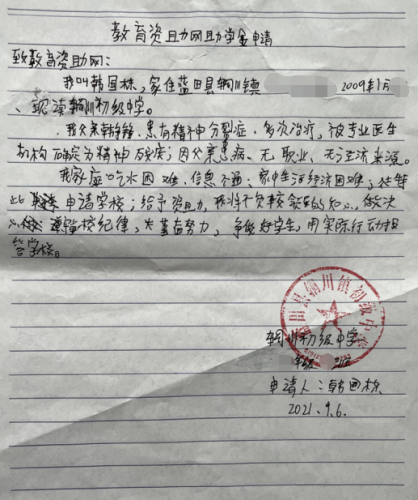 教育资助网助学金申请
致教育资助网：
我叫韩国栋，家住蓝田县辋川镇 2009年1月
、现读辋川初级中学。
我父亲韩锋，患有精神分裂症，多次治疗，被专业医生
机构确定为精神残疾；因父亲患病、无职业、无经济来源。
我家庭吃水困难、信息不通、家中生活经济困难，
此 申请学校；给予资助，我将不负
遵守校纪律，发奋努力，争做好学生，用实际行动报
答学校。
辋川初级中学
申请人：韩国栋
2021.9.6.
蓝田县辋川镇初级中学